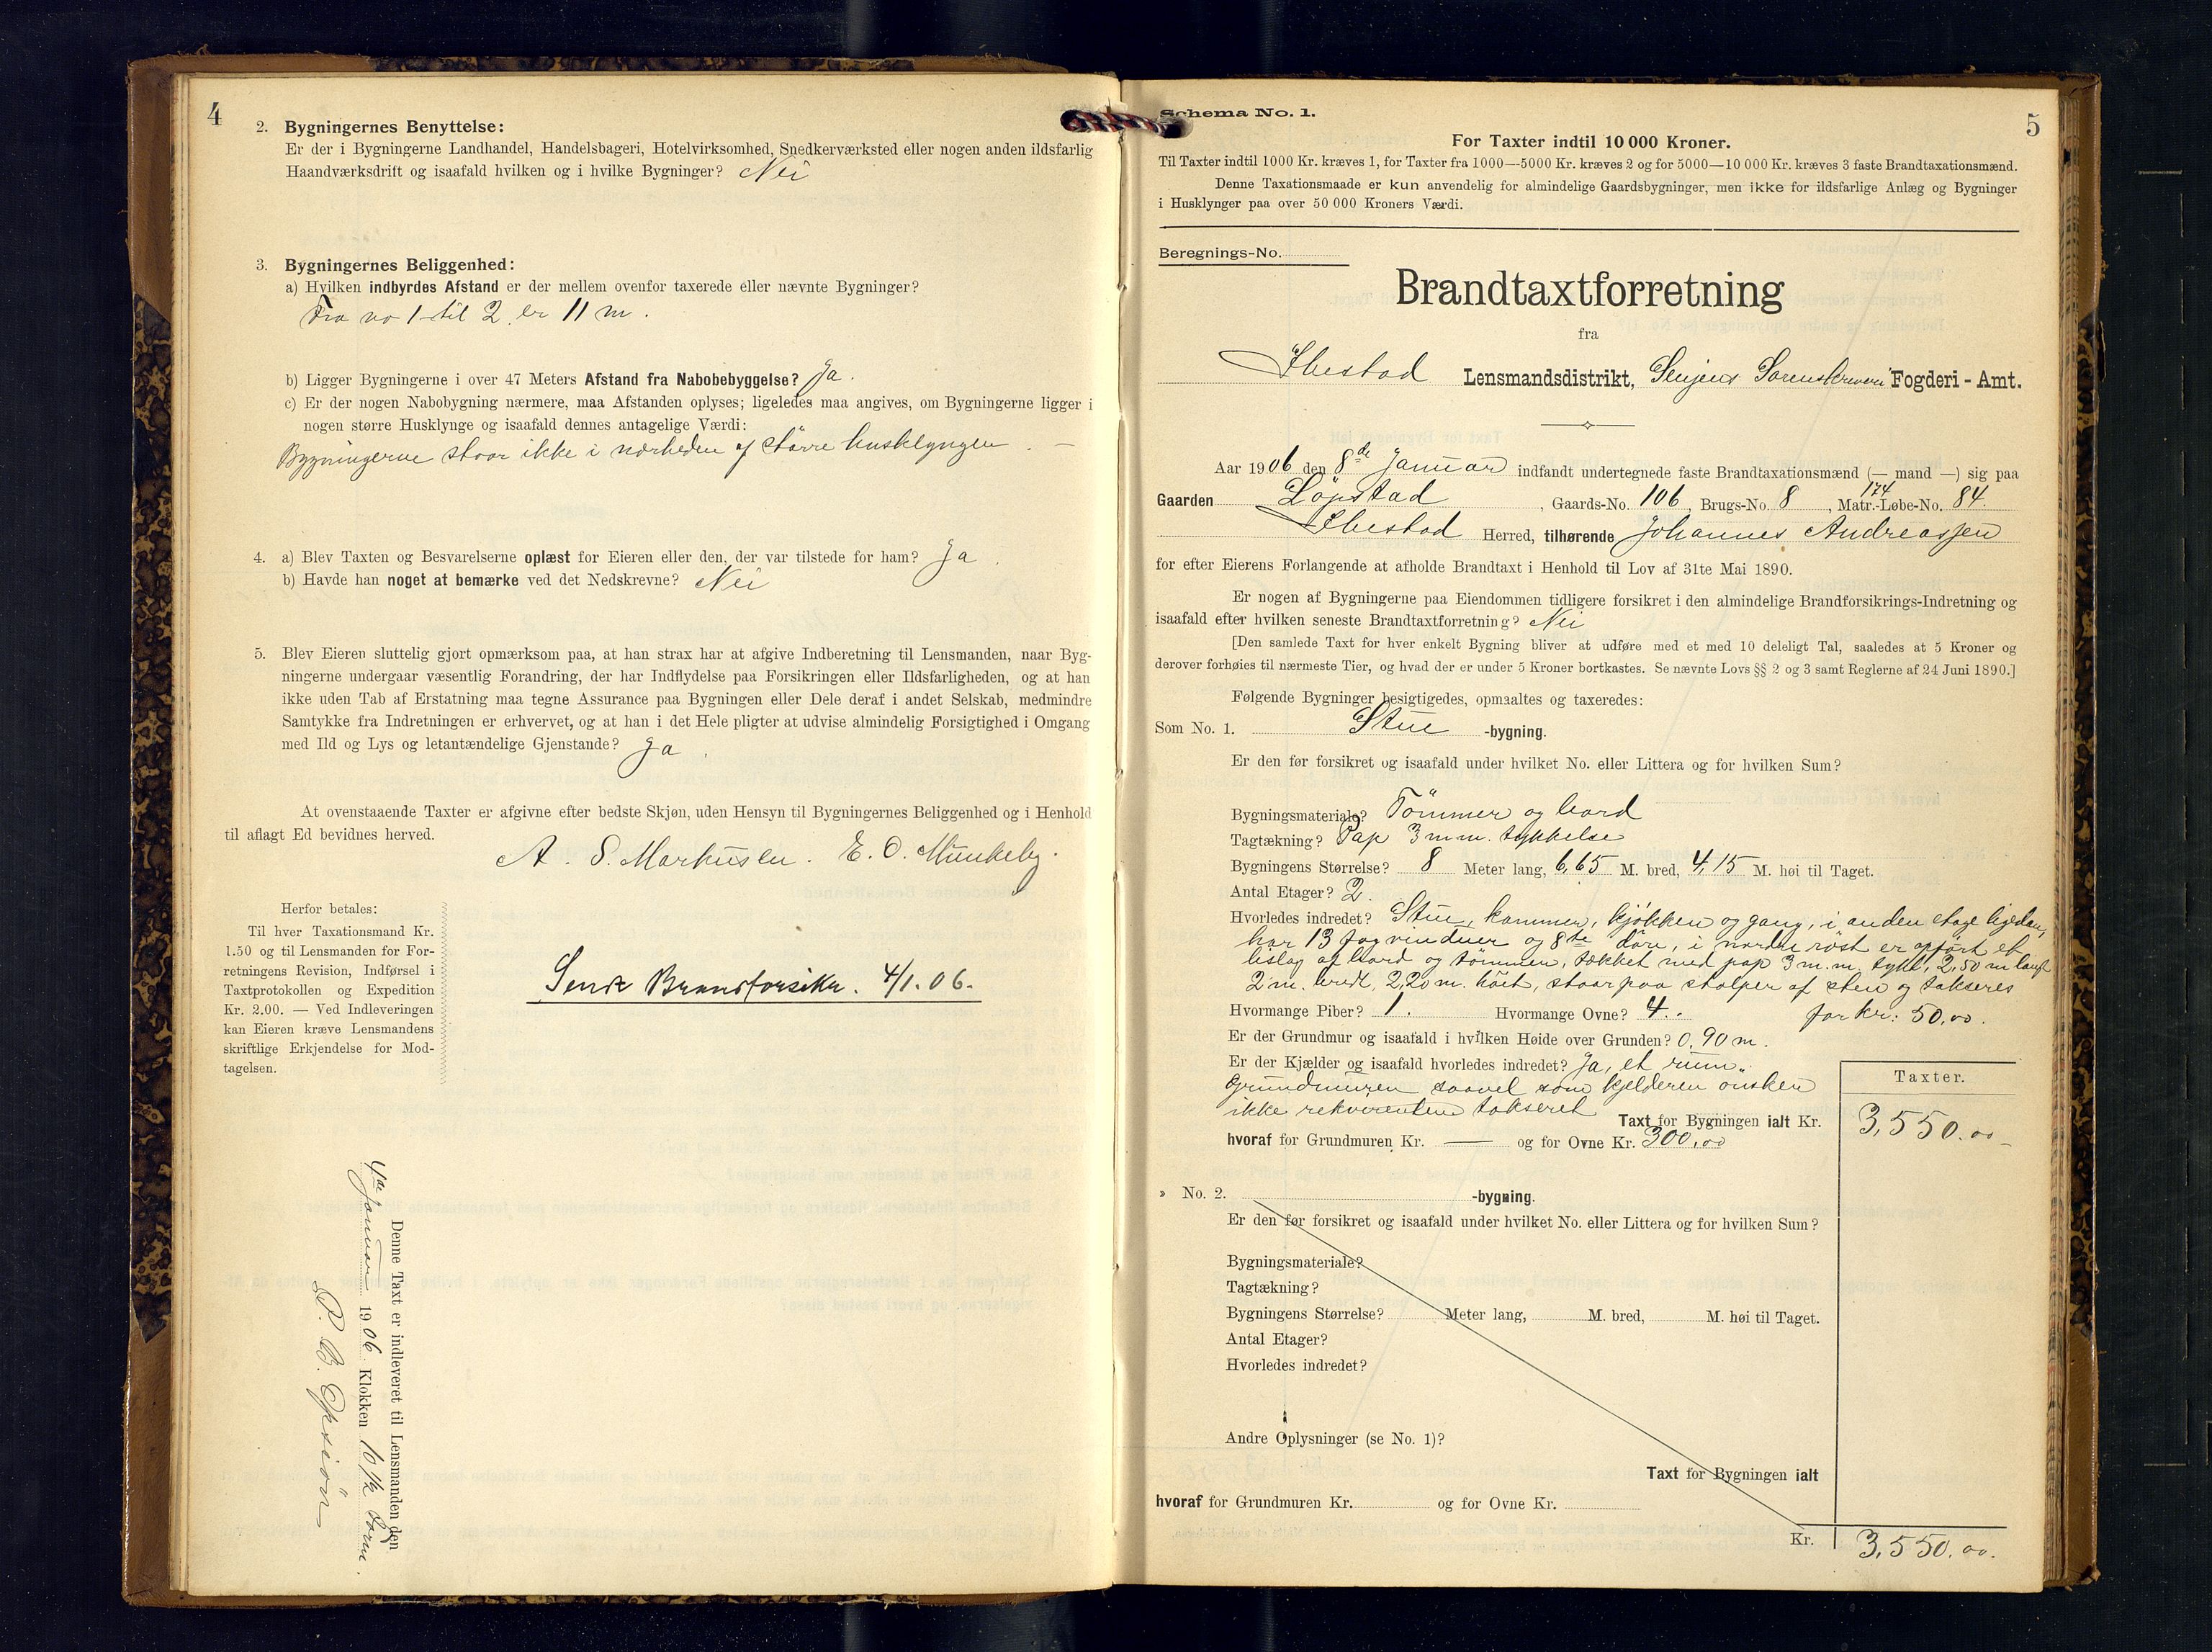 4
2. Bygningernes Benyttelse:
Er der i Bygningerne Landhandel, Handelsbageri, Hotelvirksomhed, Snedkerværksted eller nogen anden ildsfarlig
Haandværksdrift og isaafald hvilken og i hvilke Bygninger? Nei
3. Bygningernes Beliggenhed:
a) Hvilken indbyrdes Afstand er der mellem ovenfor taxerede eller nævnte Bygninger?
Fra no 1 til 2 er 11 m.
b) Ligger Bygningerne i over 47 Meters Afstand fra Nabobebyggelse? Ja.
c) Er der nogen Nabobygning nærmere, maa Afstanden oplyses; ligeledes maa angives, om Bygningerne ligger i
nogen større Husklynge og isaafald dennes antagelige Værdi:
Bygningerne staar ikke i nærheden af större husklyngen —
4. a) Blev Taxten og Besvarelserne oplæst for Eieren eller den, der var tilstede for ham? Ja.
b) Havde han noget at bemærke ved det Nedskrevne? Nei
5. Blev Eieren sluttelig gjort opmærksom paa, at han strax har at afgive Indberetning til Lensmanden, naar Byg-
ningerne undergaar væsentlig Forandring, der har Indflydelse paa Forsikringen eller Ildsfarligheden, og at han
ikke uden Tab af Erstatning maa tegne Assurance paa Bygningen eller Dele deraf i andet Selskab, medmindre
Samtykke fra Indretningen er erhvervet, og at han i det Hele pligter at udvise almindelig Forsigtighed i Omgang
med Ild og Lys og letantændelige Gjenstande? Ja.
At ovenstaaende Taxter er afgivne efter bedste Skjøn, uden Hensyn til Bygningernes Beliggenhed og i Henhold
til aflagt Ed bevidnes herved.
A. S. Markusen. E. O. Munkeby.
Herfor betales:
Til hver Taxationsmand Kr.
1.50 og til Lensmanden for For-
retningens Revision, Indførsel i
Taxtprotokollen og Expedition
Kr. 2.00. — Ved Indleveringen
kan Eieren kræve Lensmandens
skriftlige Erkjendelse for Mod-
tagelsen.
Sendt Brandforsikr. 4/1.06.
Denne Taxt er indleveret til Lensmanden den
4de Januar 1906 Klokken 10 1/2 Form.
P. B.
5
Schema No. 1.
For Taxter indtil 10 000 Kroner.
Til Taxter indtil 1000 Kr. kræves 1, for Taxter fra 1000—5000 Kr. kræves 2 og for 5000—10 000 Kr. kræves 3 faste Brandtaxationsmænd.
Denne Taxationsmaade er kun anvendelig for almindelige Gaardsbygninger, men ikke for ildsfarlige Anlæg og Bygninger
i Husklynger paa over 50 000 Kroners Værdi.
Beregnings-No.
Brandtaxtforretning
fra
Ibestad Lensmandsdistrikt, Senjens Sorenskriveri Fogderi - Amt.
Aar 1906 den 8de Januar indfandt undertegnede faste Brandtaxationsmænd (— mand —) sig paa
Gaarden Löpstad, Gaards-No. 106, Brugs-No. 8, Matr.-Løbe-No. 174 84.
Ibestad Herred, tilhørende Johannes Andreassen
for efter Eierens Forlangende at afholde Brandtaxt i Henhold til Lov af 31te Mai 1890.
Er nogen af Bygningerne paa Eiendommen tidligere forsikret i den almindelige Brandforsikrings-Indretning og
isaafald efter hvilken seneste Brandtaxtforretning? Nei
[Den samlede Taxt for hver enkelt Bygning bliver at udføre med et med 10 deleligt Tal, saaledes at 5 Kroner og
derover forhøies til nærmeste Tier, og hvad der er under 5 Kroner bortkastes. Se nævnte Lovs §§ 2 og 3 samt Reglerne af 24 Juni 1890.]
Følgende Bygninger besigtigedes, opmaaltes og taxeredes:
Som No. 1. Stue -bygning.
Er den før forsikret og isaafald under hvilket No. eller Littera og for hvilken Sum?
Bygningsmateriale? Tömmer og bord
Tagtækning? Pap 3 m.m. tykkelse
Bygningens Størrelse? 8 Meter lang, 6,65 M. bred, 4,15 M. høi til Taget.
Antal Etager? 2.
Hvorledes indredet? Stue, kammer, kjökken og gang, i anden etage ligedan,
har 13 fag vinduer og 8te döre, i nordre röst er opfört et
bislag af bord og tömmer, tækket med pap 3 m.m. tykt, 2,50 m langt
2 m. bredt, 2,20 m. höit, staar paa stolper af sten og takseres
for kr: 50.00.
Hvormange Piber? 1. Hvormange Ovne? 4.
Er der Grundmur og isaafald i hvilken Høide over Grunden? 0,90 m.
Er der Kjælder og isaafald hvorledes indredet? Ja, et rum.
Grundmuren saavel som kjelderen önsken
ikke rekvirenten takseret
Taxter.
Taxt for Bygningen ialt Kr. 3,550.00
hvoraf for Grundmuren Kr. — og for Ovne Kr. 300,00
» No. 2. -bygning.
Er den før forsikret og isaafald under hvilket No. eller Littera og for hvilken Sum?
Bygningsmateriale?
Tagtækning?
Bygningens Størrelse? Meter lang, M. bred, M. høi til Taget.
Antal Etager?
Hvorledes indredet?
Andre Oplysninger (se No. 1)?
Taxt for Bygningen ialt
hvoraf for Grundmuren Kr. og for Ovne Kr.
Kr. 3,550.00.